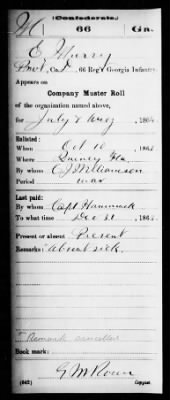 (Confederate.)
66 Ga.
E
Pvt, Co. , 66 Reg't Georgia Infantry.
Appears on
Company Muster Roll
of the organization named above,
for July & Aug, 186
Enlisted:
When Oct 10, 186
Where Quincy Fla
By whom C J Williamson
Period war
Last paid:
By whom Capt Hammock
To what time Dec 31, 186
Present or absent Present
Remarks: Absent sick.
Remark cancelled
Book mark:
(642) Copyist.